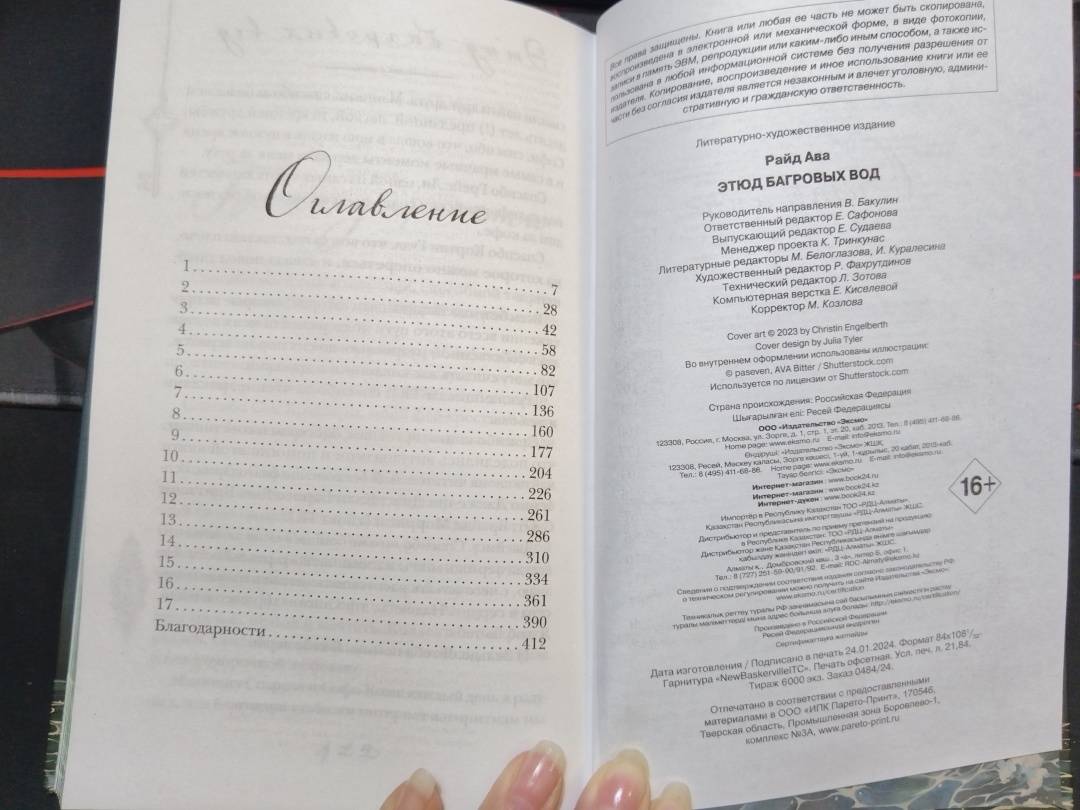 Оглавление
1 ........ 7
2 ........ 28
3 ........ 42
4 ........ 58
5 ........ 82
6 ........ 107
7 ........ 136
8 ........ 160
9 ........ 177
10 ........ 204
11 ........ 226
12 ........ 261
13 ........ 286
14 ........ 310
15 ........ 334
16 ........ 361
17 ........ 390
Благодарности ........ 412
Все права защищены. Книга или любая ее часть не может быть скопирована,
воспроизведена в электронной или механической форме, в виде фотокопии,
записи в память ЭВМ, репродукции или каким-либо иным способом, а также ис-
пользована в любой информационной системе без получения разрешения от
издателя. Копирование, воспроизведение и иное использование книги или ее
части без согласия издателя является незаконным и влечет уголовную, админи-
стративную и гражданскую ответственность.
Литературно-художественное издание
Райд Ава
ЭТЮД БАГРОВЫХ ВОД
Руководитель направления В. Бакулин
Ответственный редактор Е. Сафонова
Выпускающий редактор Е. Судаева
Менеджер проекта К. Тринкунас
Литературные редакторы М. Белоглазова, И. Куралесина
Художественный редактор Р. Фахрутдинов
Технический редактор Л. Зотова
Компьютерная верстка Е. Киселевой
Корректор М. Козлова
Cover art © 2023 by Christin Engelberth
Cover design by Julia Tyler
Во внутреннем оформлении использованы иллюстрации:
© paseven, AVA Bitter / Shutterstock.com
Используется по лицензии от Shutterstock.com
Страна происхождения: Российская Федерация
Шығарылған елі: Ресей Федерациясы
ООО «Издательство «Эксмо»
123308, Россия, г. Москва, ул. Зорге, д. 1, стр. 1, эт. 20, каб. 2013. Тел.: 8 (495) 411-68-86.
Home page: www.eksmo.ru E-mail: info@eksmo.ru
Өндіруші: «Издательство «Эксмо» ЖШҚ,
123308, Ресей, Мәскеу қаласы, Зорге көшесі, 1-үй, 1-құрылыс, 20 қабат, 2013-каб.
Тел.: 8 (495) 411-68-86. Home page: www.eksmo.ru E-mail: info@eksmo.ru.
Тауар белгісі: «Эксмо»
Интернет-магазин : www.book24.ru
Интернет-магазин : www.book24.kz
Интернет-дукен : www.book24.kz
16+
Импортёр в Республику Казахстан ТОО «РДЦ-Алматы».
Қазақстан Республикасына импорттаушы «РДЦ-Алматы» ЖШС.
Дистрибьютор и представитель по приему претензий на продукцию
в Республике Казахстан: ТОО «РДЦ-Алматы»
Дистрибьютор және Қазақстан Республикасында өнімге шағымдар
қабылдау жөніндегі өкіл: «РДЦ-Алматы» ЖШС.
Алматы қ., Домбровский көш., 3 «а», литер Б, офис 1.
Тел.: 8 (727) 251-59-90/91/92. E-mail: RDC-Almaty@eksmo.kz
Сведения о подтверждении соответствия издания согласно законодательству РФ
о техническом регулировании можно получить на сайте Издательства «Эксмо»:
www.eksmo.ru/certification
Техникалық реттеу туралы РФ заңнамасына сай басылымның сәйкестігін растау
туралы мәліметтерді мына адрес бойынша алуға болады: http://eksmo.ru/certification/
Произведено в Российской Федерации
Ресей Федерациясында өндірілген
Сертификаттауға жатпайды
Дата изготовления / Подписано в печать 24.01.2024. Формат 84x108¹/₃₂.
Гарнитура «NewBaskervilleITC». Печать офсетная. Усл. печ. л. 21,84.
Тираж 6000 экз. Заказ 0484/24.
Отпечатано в соответствии с предоставленными
материалами в ООО «ИПК Парето-Принт», 170546,
Тверская область, Промышленная зона Боровлево-1,
комплекс №3А, www.pareto-print.ru